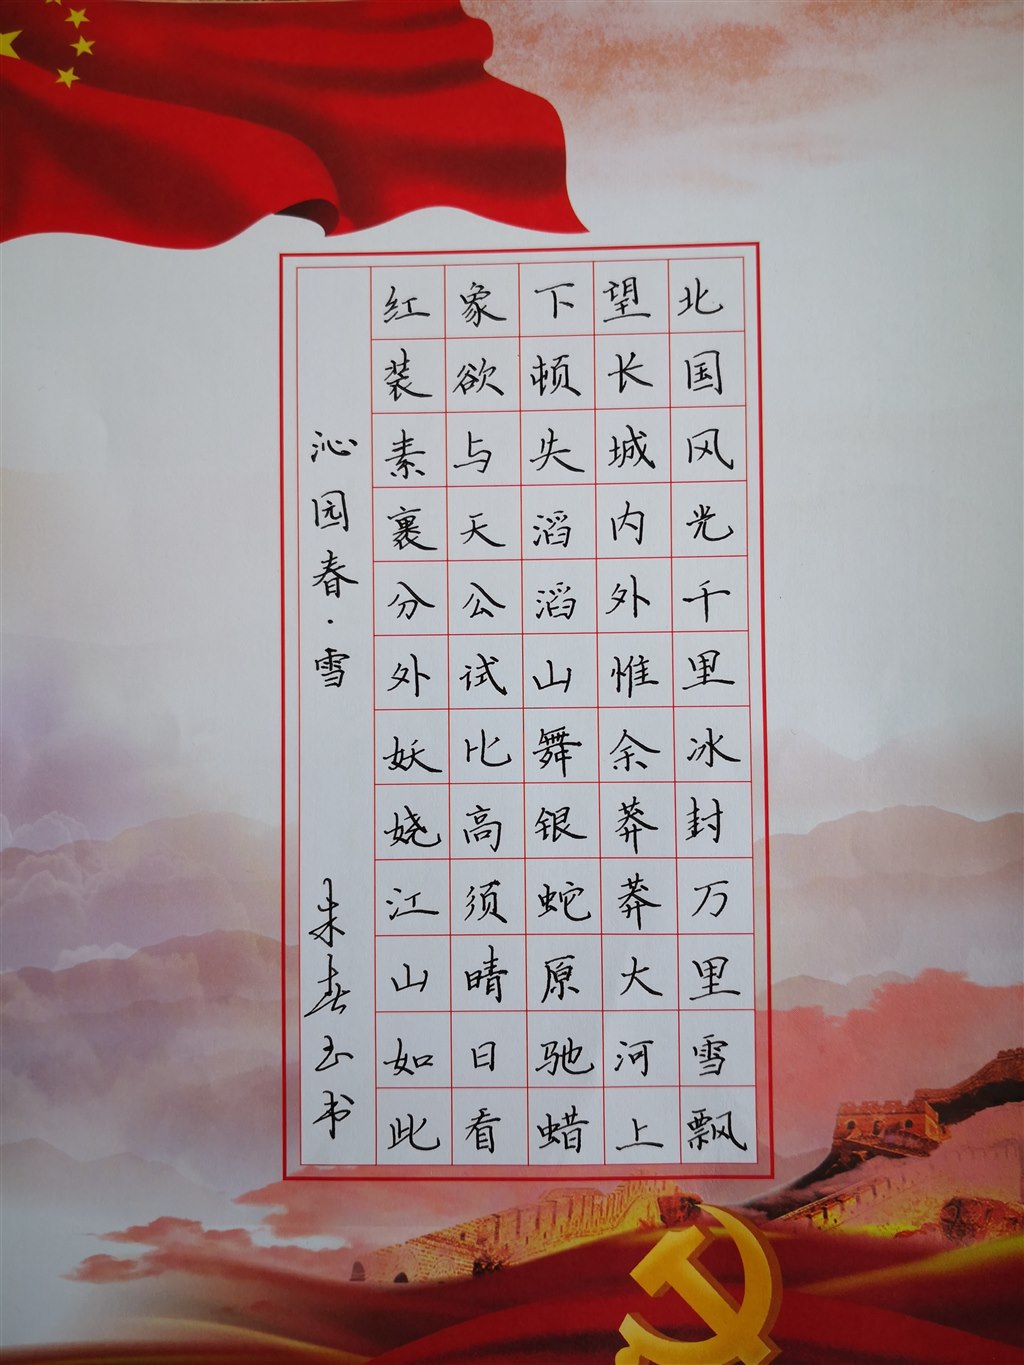 北国风光千里冰封万里雪飘
望长城内外惟余莽莽大河上
下顿失滔滔山舞银蛇原驰蜡
象欲与天公试比高须晴日看
红装素裹分外妖娆江山如此
沁园春·雪 朱春玉书